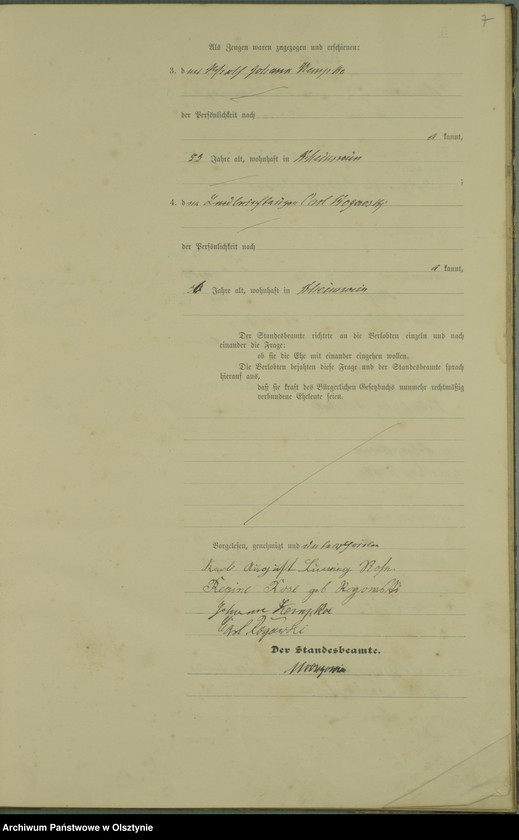 7
Als Zeugen waren zugezogen und erschienen:
3. der Johann Kempka
der Persönlichkeit nach
kannt,
53 Jahre alt, wohnhaft in
;
4. der Carl Rogowski
der Persönlichkeit nach
kannt,
Jahre alt, wohnhaft in
Der Standesbeamte richtete an die Verlobten einzeln und nach
einander die Frage:
ob sie die Ehe mit einander eingehen wollen.
Die Verlobten bejahten diese Frage und der Standesbeamte sprach
hierauf aus,
daß sie kraft des Bürgerlichen Gesetzbuchs nunmehr rechtmäßig
verbundene Eheleute seien.
Vorgelesen, genehmigt und unterschrieben
Karl August Ludwig
Regine geb Rogowski
Johann Kempka
Carl Rogowski
Der Standesbeamte.
Archiwum Państwowe w Olsztynie